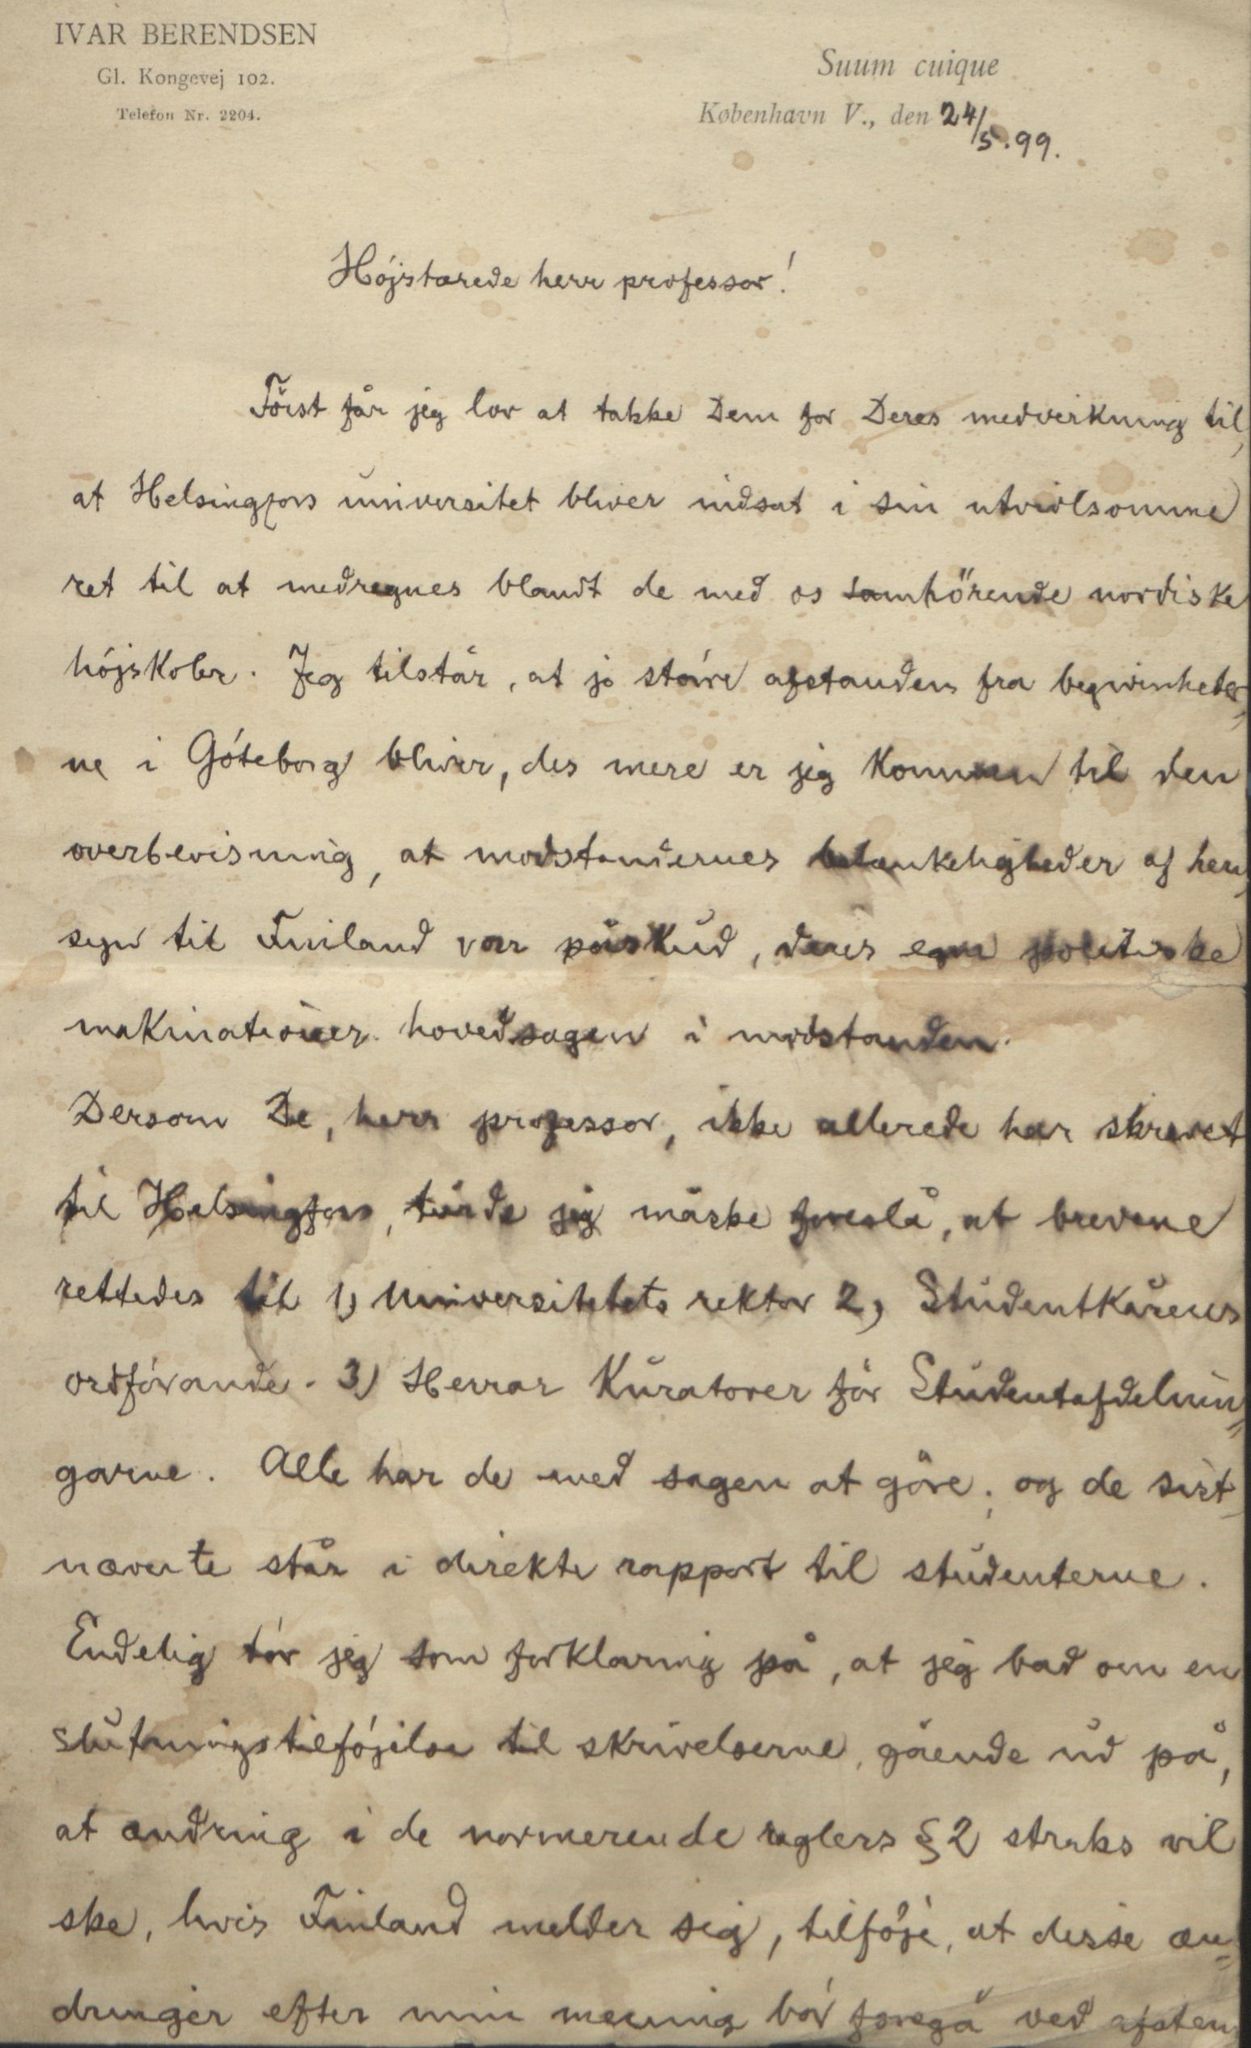 IVAR BERENDSEN
Gl. Kongevej 102.
Telefon Nr. 2204.
Suum cuique
København V., den 24/5.99.
Højstærede herr professor!
Först får jeg lov at takke Dem for Deres medvirkning til,
at Helsingfors universitet bliver indsat i sin utvivlsomme
ret til at medregnes blandt de med os samhörende nordiske
højskoler. Jeg tilstår, at jo større afstanden fra begivenheter-
ne i Göteborg bliver, des mere er jeg kommen til den
overbevisning, at modstandernes betænkeligheder af hen-
syn til Finland var påskud, deres egne politiske
makinationer hovedsagen i modstanden.
Dersom De, herr professor, ikke allerede har skrevet
til Helsingfors, turde jeg måske foreslå, at brevene
rettedes til 1) Universitetets rektor 2) Studentkårens
ordförande. 3) Herrar Kuratorer för Studentafdelnin-
garne. Alle har de med sagen at göre; og de sist-
nævnte står i direkte rapport til studenterne.
Endelig tör jeg som forklaring på, at jeg bad om en
slutningstilföjelse til skrivelserne, gående ud på,
at ændring i de normerende reglers § 2 straks vil
ske, hvis Finland melder sig, tilföje, at disse æn-
dringer efter min mening bör foregå ved afstem-